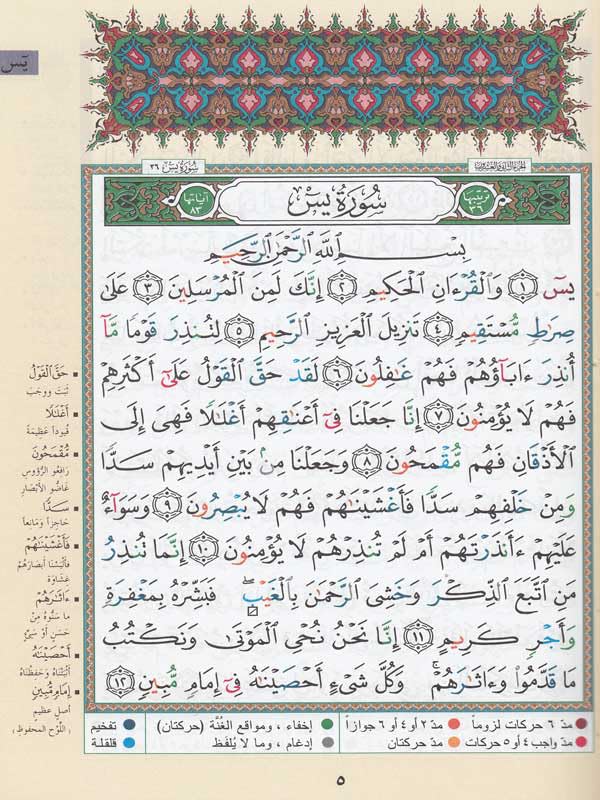 يس
الجزء الثالث والعشرون
سُورَة يسٓ ٣٦
ترتيبها ٣٦
سُورَةُ يسٓ
آياتها ٨٣
بِسْمِ ٱللَّهِ ٱلرَّحْمَٰنِ ٱلرَّحِيمِ
يسٓ ١ وَٱلْقُرْءَانِ ٱلْحَكِيمِ ٢ إِنَّكَ لَمِنَ ٱلْمُرْسَلِينَ ٣ عَلَىٰ
صِرَٰطٍ مُّسْتَقِيمٍ ٤ تَنزِيلَ ٱلْعَزِيزِ ٱلرَّحِيمِ ٥ لِتُنذِرَ قَوْمًا مَّآ
أُنذِرَ ءَابَآؤُهُمْ فَهُمْ غَٰفِلُونَ ٦ لَقَدْ حَقَّ ٱلْقَوْلُ عَلَىٰٓ أَكْثَرِهِمْ
فَهُمْ لَا يُؤْمِنُونَ ٧ إِنَّا جَعَلْنَا فِىٓ أَعْنَٰقِهِمْ أَغْلَٰلًا فَهِىَ إِلَى
ٱلْأَذْقَانِ فَهُم مُّقْمَحُونَ ٨ وَجَعَلْنَا مِنۢ بَيْنِ أَيْدِيهِمْ سَدًّا
وَمِنْ خَلْفِهِمْ سَدًّا فَأَغْشَيْنَٰهُمْ فَهُمْ لَا يُبْصِرُونَ ٩ وَسَوَآءٌ
عَلَيْهِمْ ءَأَنذَرْتَهُمْ أَمْ لَمْ تُنذِرْهُمْ لَا يُؤْمِنُونَ ١٠ إِنَّمَا تُنذِرُ
مَنِ ٱتَّبَعَ ٱلذِّكْرَ وَخَشِىَ ٱلرَّحْمَٰنَ بِٱلْغَيْبِ ۖ فَبَشِّرْهُ بِمَغْفِرَةٍ
وَأَجْرٍ كَرِيمٍ ١١ إِنَّا نَحْنُ نُحْىِ ٱلْمَوْتَىٰ وَنَكْتُبُ
مَا قَدَّمُوا۟ وَءَاثَٰرَهُمْ ۚ وَكُلَّ شَىْءٍ أَحْصَيْنَٰهُ فِىٓ إِمَامٍ مُّبِينٍ ١٢
حَقَّ ٱلْقَوْلُ
ثَبَتَ ووَجَبَ
أَغْلَٰلًا
قُيوداً عَظِيمَةً
مُّقْمَحُونَ
رَافِعُو الرُّؤُوسِ
غَاضُّو الأبْصَارِ
سَدًّا
حَاجِزاً وَمَانِعاً
فَأَغْشَيْنَٰهُمْ
فَأَلْبَسْنَا أَبْصَارَهُمْ
غِشَاوَةً
ءَاثَٰرَهُمْ
ما سَنُّوهُ مِنْ
حَسَنٍ أَوْ سَيِّئٍ
أَحْصَيْنَٰهُ
أَثْبَتْنَاهُ وَحَفِظْنَاهُ
إِمَامٍ مُّبِينٍ
أصلٍ عظيمٍ
(اللَّوْحِ المحفوظِ)
مدّ ٦ حركات لزوماً
مدّ ٢ أو ٤ أو ٦ جوازاً
إخفاء ، ومواقع الغُنَّة (حركتان)
تفخيم
مدّ واجب ٤ أو ٥ حركات
مدّ حركتان
إدغام ، وما لا يُلفَظ
قلقلة
٥